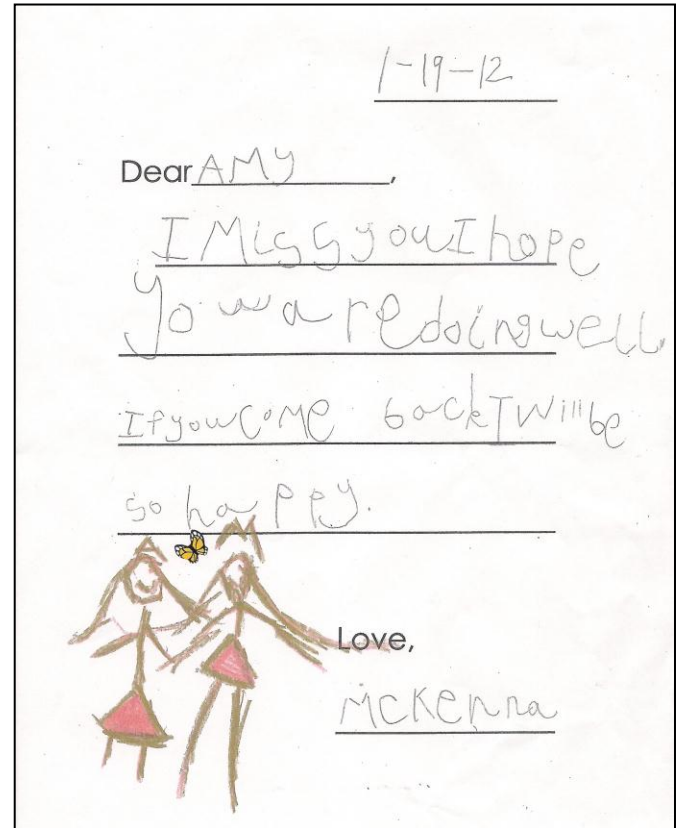 1-19-12
Dear AMY,
I Miss you I hope
you are doing well.
If you come back I will be
so happy.
Love,
McKenna